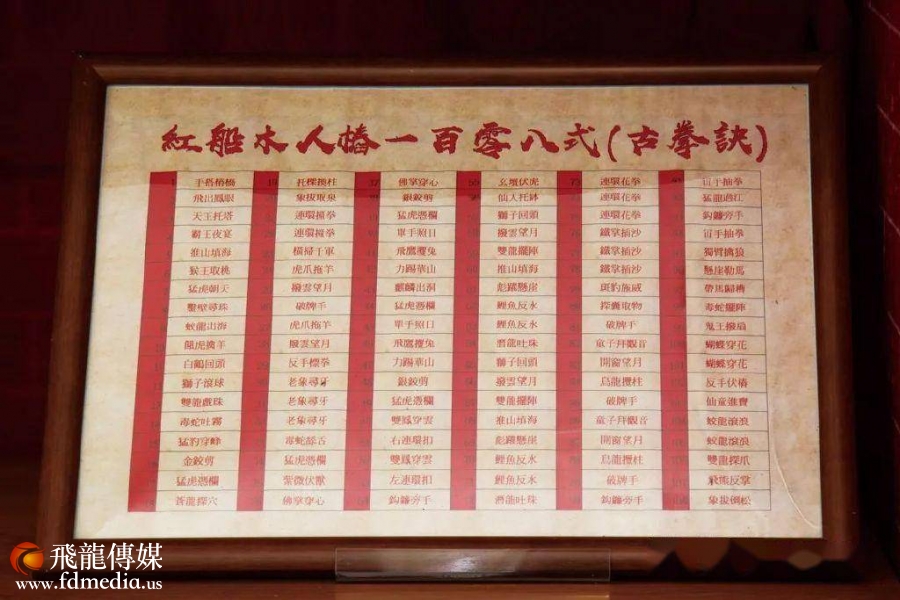 紅船木人樁一百零八式(古拳訣)
手搭梧橋 托樑換柱 佛掌穿心 玄壇伏虎 連環花拳 宙手抽拳
飛出鳳眼 象拔取泉 銀鉸剪 仙人托缽 連環花拳 猛龍過江
天王托塔 連環攔拳 猛虎憑欄 獅子回頭 連環花拳 鈎鐮旁手
霸王夜宴 連環攔拳 單手照日 撥雲望月 鐵掌插沙 宙手抽拳
推山填海 橫掃千軍 飛鷹攫兔 雙龍擺陣 鐵掌插沙 獨臂擒狼
猴王取桃 虎爪拖羊 力錫華山 推山填海 鐵掌插沙 懸崖勒馬
猛虎朝天 撥雲望月 麒麟出洞 彪躍懸崖 斑豹施威 帶馬歸槽
鑿壁尋珠 破牌手 猛虎憑欄 鯉魚反水 探囊取物 毒蛇擺陣
蛟龍出海 虎爪拖羊 單手照日 鯉魚反水 破牌手 鬼王撥扇
餓虎擒羊 撥雲望月 飛鷹攫兔 潛龍吐珠 童子拜觀音 蝴蝶穿花
白鶴回頭 反手標拳 力錫華山 獅子回頭 開窗望月 蝴蝶穿花
獅子滾球 老象尋牙 銀鉸剪 撥雲望月 烏龍攔柱 反手伏樁
雙龍戲珠 老象尋牙 猛虎憑欄 雙龍擺陣 破牌手 仙童進寶
毒蛇吐霧 老象尋牙 雙鳳穿雲 推山填海 童子拜觀音 蛟龍滾浪
猛豹穿峰 毒蛇舔舌 右連環扣 彪躍懸崖 開窗望月 蛟龍滾浪
金鉸剪 猛虎憑欄 雙鳳穿雲 鯉魚反水 烏龍攔柱 雙龍探爪
猛虎憑欄 紫微伏獸 左連環扣 鯉魚反水 破牌手 飛熊反掌
蒼龍探穴 佛掌穿心 鈎鐮旁手 潛龍吐珠 鈎鐮旁手 象拔倒松
飛龍傳媒
www.fdmedia.us